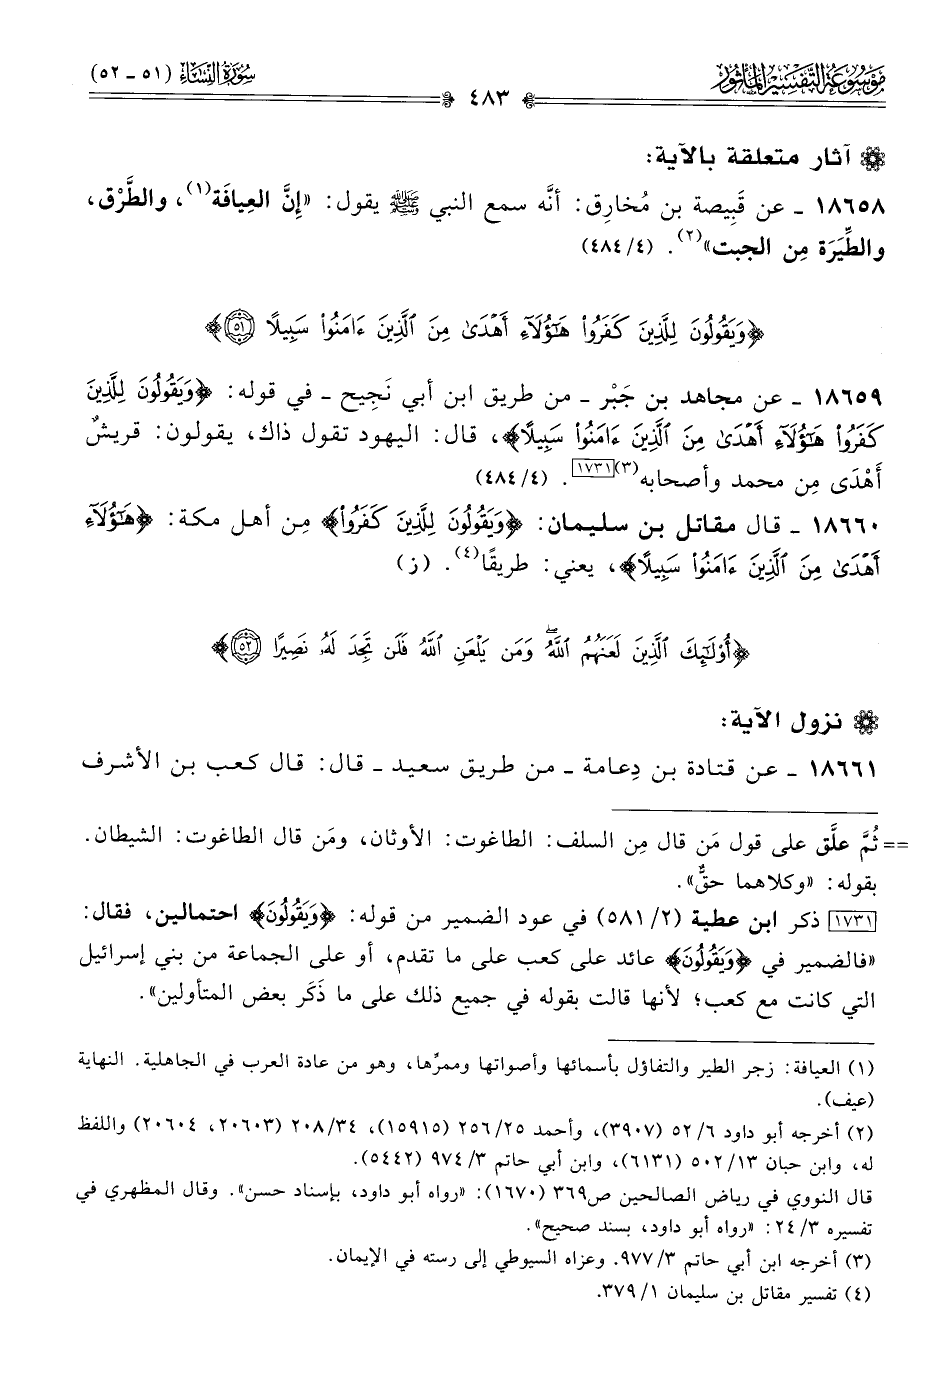 موسوعة التفسير المأثور
سورة النساء (٥١ - ٥٢)
٤٨٣
آثار متعلقة بالآية:
١٨٦٥٨ - عن قَبِيصة بن مُخارِق: أنَّه سمع النبي ﷺ يقول: «إنَّ العِيافَة(١)، والطَّرْق،
والطِّيَرَة مِن الجبت»(٢). (٤/ ٤٨٤)
﴿وَيَقُولُونَ لِلَّذِينَ كَفَرُواْ هَـٰٓؤُلَآءِ أَهْدَىٰ مِنَ ٱلَّذِينَ ءَامَنُواْ سَبِيلًا ٥١﴾
١٨٦٥٩ - عن مجاهد بن جَبْر - من طريق ابن أبي نَجِيح - في قوله: ﴿وَيَقُولُونَ لِلَّذِينَ
كَفَرُواْ هَـٰٓؤُلَآءِ أَهْدَىٰ مِنَ ٱلَّذِينَ ءَامَنُواْ سَبِيلًا﴾، قال: اليهود تقول ذاك، يقولون: قريشٌ
أَهْدَى مِن محمد وأصحابه(٣)[١٧٣١]. (٤/ ٤٨٤)
١٨٦٦٠ - قال مقاتل بن سليمان: ﴿وَيَقُولُونَ لِلَّذِينَ كَفَرُواْ﴾ مِن أهل مكة: ﴿هَـٰٓؤُلَآءِ
أَهْدَىٰ مِنَ ٱلَّذِينَ ءَامَنُواْ سَبِيلًا﴾، يعني: طريقًا(٤). (ز)
﴿أُوْلَـٰٓئِكَ ٱلَّذِينَ لَعَنَهُمُ ٱللَّهُۖ وَمَن يَلْعَنِ ٱللَّهُ فَلَن تَجِدَ لَهُۥ نَصِيرًا ٥٢﴾
نزول الآية:
١٨٦٦١ - عن قتادة بن دِعامة - من طريق سعيد - قال: قال كعب بن الأشرف
== ثُمَّ علَّق على قول مَن قال مِن السلف: الطاغوت: الأوثان، ومَن قال الطاغوت: الشيطان.
بقوله: «وكلاهما حقٌّ».
[١٧٣١] ذكر ابن عطية (٢/ ٥٨١) في عود الضمير من قوله: ﴿وَيَقُولُونَ﴾ احتمالين، فقال:
«فالضمير في ﴿وَيَقُولُونَ﴾ عائد على كعب على ما تقدم، أو على الجماعة من بني إسرائيل
التي كانت مع كعب؛ لأنها قالت بقوله في جميع ذلك على ما ذَكَر بعض المتأولين».
(١) العيافة: زجر الطير والتفاؤل بأسمائها وأصواتها وممرِّها، وهو من عادة العرب في الجاهلية. النهاية
(عيف).
(٢) أخرجه أبو داود ٦/ ٥٢ (٣٩٠٧)، وأحمد ٢٥/ ٢٥٦ (١٥٩١٥)، ٣٤/ ٢٠٨ (٢٠٦٠٣، ٢٠٦٠٤) واللفظ
له، وابن حبان ١٣/ ٥٠٢ (٦١٣١)، وابن أبي حاتم ٣/ ٩٧٤ (٥٤٤٢).
قال النووي في رياض الصالحين ص٣٦٩ (١٦٧٠): «رواه أبو داود، بإسناد حسن». وقال المظهري في
تفسيره ٣/ ٢٤: «رواه أبو داود، بسند صحيح».
(٣) أخرجه ابن أبي حاتم ٣/ ٩٧٧. وعزاه السيوطي إلى رسته في الإيمان.
(٤) تفسير مقاتل بن سليمان ١/ ٣٧٩.